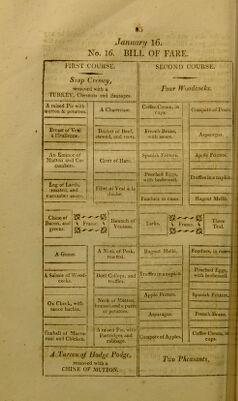 85
January 16.
No. 16. BILL OF FARE.
FIRST COURSE.
Soup Cressy,
removed with a
TURKEY, Chesnuts and Sausages.
A raised Pie with
mutton & potatoes.
A Chartreuse.
Breast of Veal
Brisket of Beef,
stewed, and
An Emince of
Mutton and Cu-
cumbers.
Civet of Hare.
Leg of Lamb,
roasted, and
cucumber sauce.
Fillet of Veal à la
Chine of
Bacon, and
greens.
France.
Haunch of
Venison.
A Goose.
A Neck of Pork,
roasted.
A Salmie of Wood-
cocks.
Beef Collops, and
truffles.
Ox Cheek, with
sauce hachis.
Neck of Mutton,
of potatoes.
Timball of Maca-
roni and Chicken.
A raised Pie, with
Partridges and
cabbage.
A Tureen of Hodge Podge,
removed with a
CHINE OF MUTTON.
SECOND COURSE.
Four Woodcocks.
Coffee Cream, in
cups.
Compote of Pears.
French Beans,
with sauce.
Asparagus.
Spanish Fritters.
Apple Fritters.
Poached Eggs,
with
Truffles in a napkin.
Ragout Mellé.
Larks.
France.
Three
Teal.
Ragout Mellé.
Truffles in a napkin.
Poached Eggs,
with
Apple Fritters.
Spanish Fritters.
Asparagus.
French Beans.
Compote of Apples.
Coffee Cream, in
cups.
Two Pheasants.